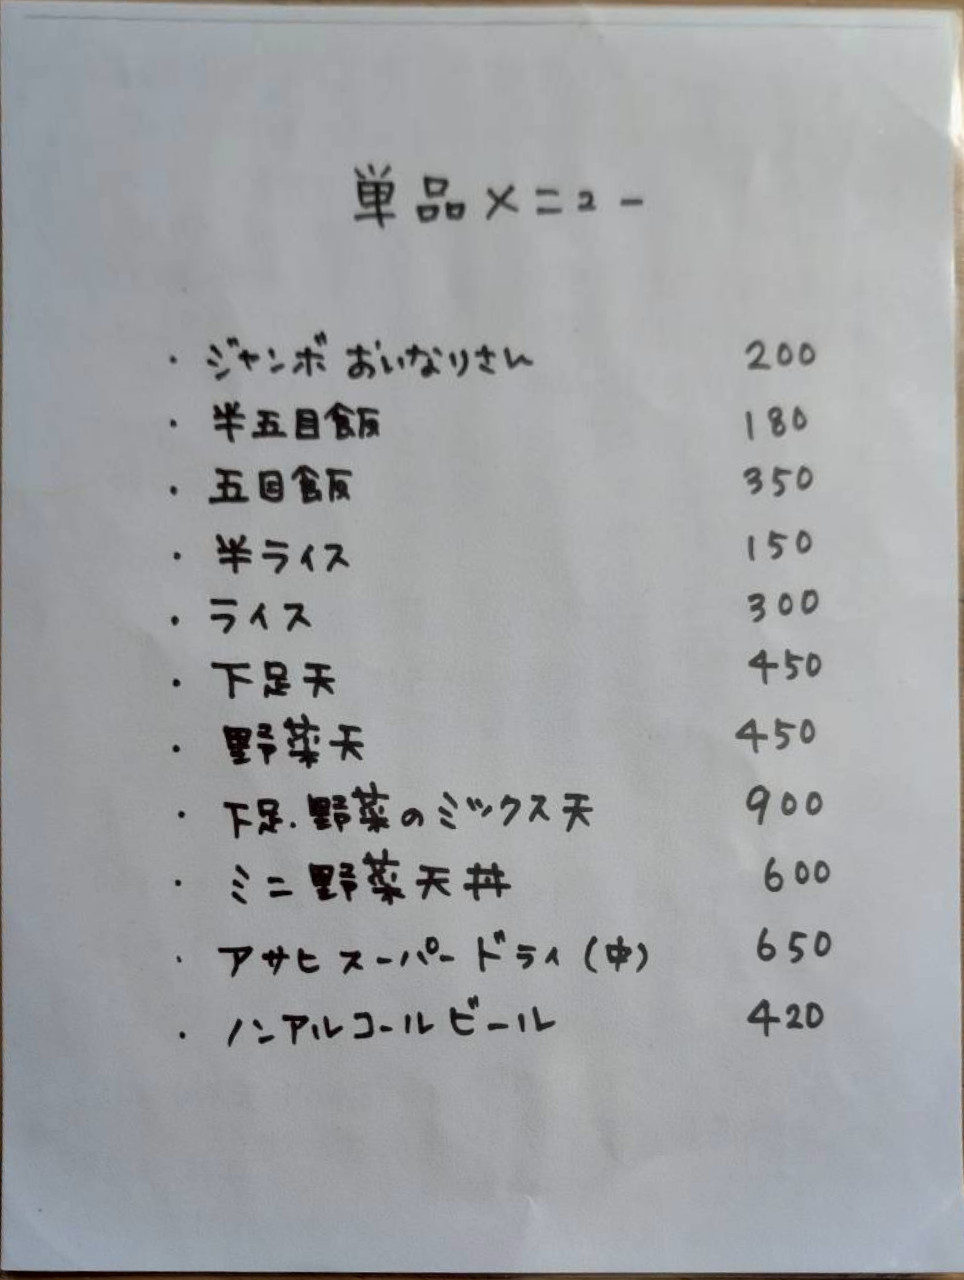 単品メニュー
・ジャンボおいなりさん 200
・半五目飯 180
・五目飯 350
・半ライス 150
・ライス 300
・下足天 450
・野菜天 450
・下足.野菜のミックス天 900
・ミニ野菜天丼 600
・アサヒスーパードライ(中) 650
・ノンアルコールビール 420